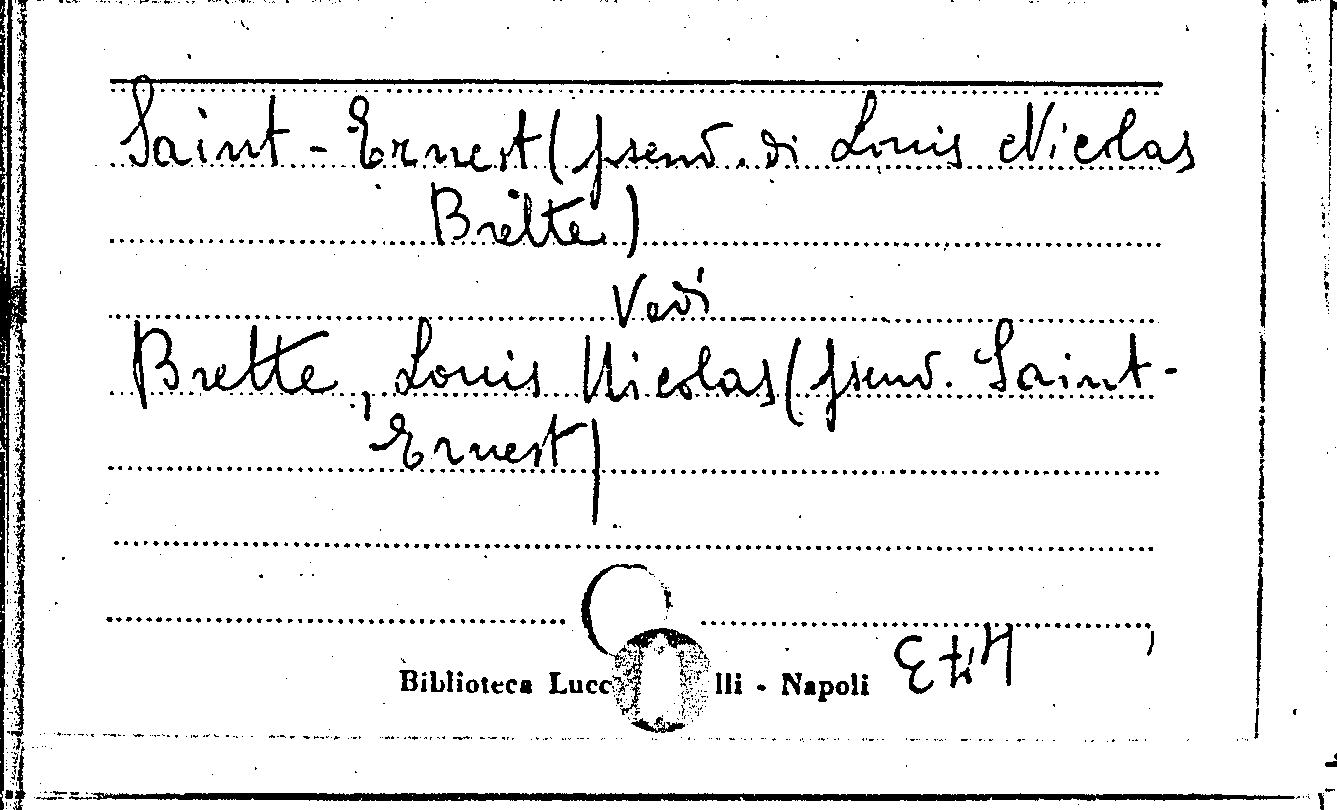 Saint-Ernest (pseud. di Louis Nicolas
Brette)
Vedi
Brette, Louis Nicolas (pseud. Saint-
Ernest)
Biblioteca Lucc lli - Napoli